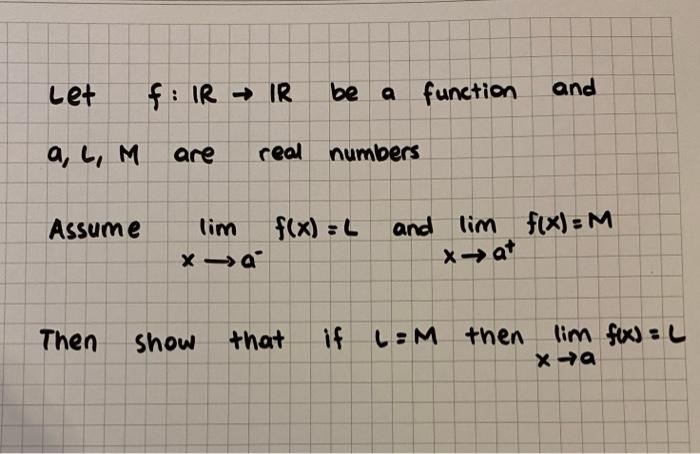 Let f: IR → IR be a function and
a, L, M are real numbers
Assume lim f(x) = L and lim f(x) = M
x → a⁻ x → a⁺
Then show that if L = M then lim f(x) = L
x → a